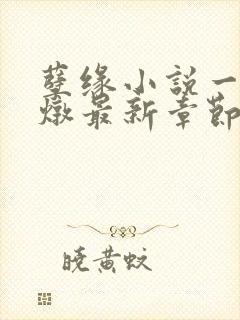 孽缘小说一
燉最新章节
晓黄蚊